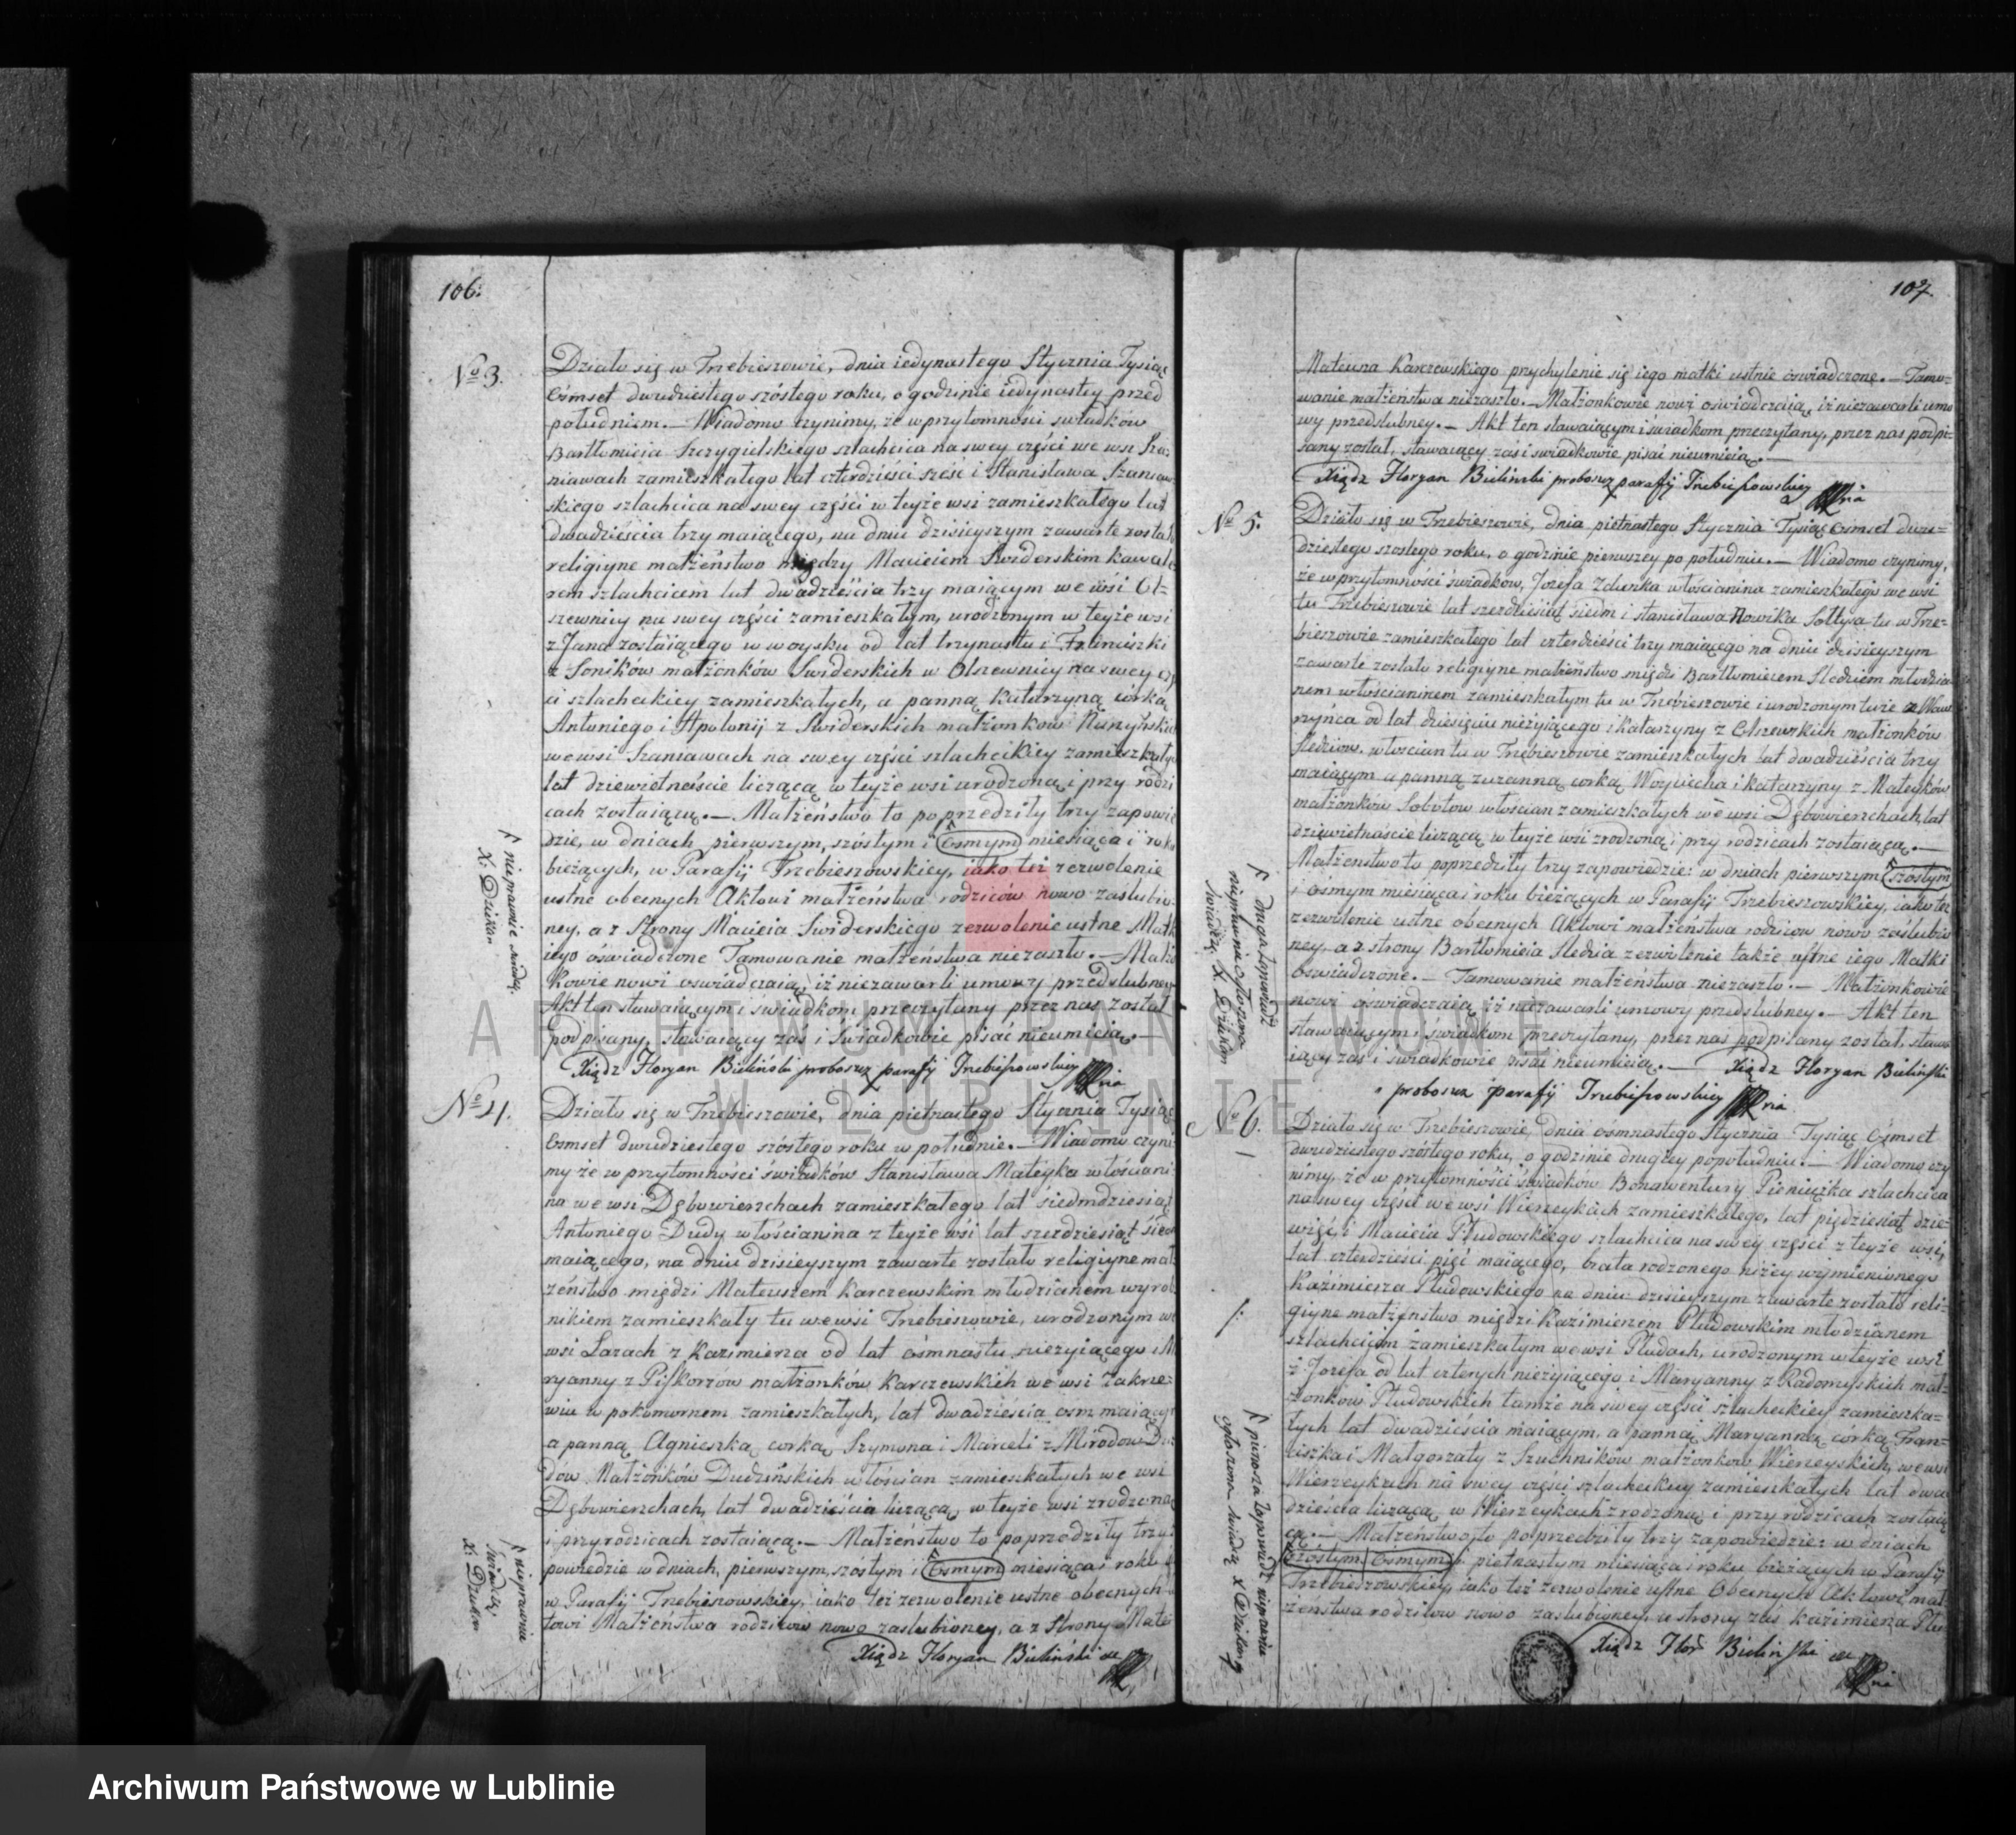 106.
No 3.
Działo się w Trzebieszowie, dnia iedynastego Stycznia Tysiąc
Osmset dwudziestego szóstego roku, o godzinie iedynastey przed
południem. — Wiadomo czynimy, że w przytomności świadków
Bartłomieia Szczygielskiego szlachcica na swey części we wsi Sza-
niawach zamieszkałego lat czterdzieści sześć i Stanisława Szaniaw
skiego szlachcica na swey części w teyże wsi zamieszkałego lat
dwadzieścia trzy maiącego, na dniu dzisieyszym zawarte zostało
religiyne małżeństwo między Macieiem Świderskim kawale
rem szlachcicem lat dwadzieścia trzy maiącym we wsi Ol-
szewnicy na swey części zamieszkałym, urodzonym w teyże wsi
z Jana zostaiącego w woysku od lat trzynastu i Franciszki
z Soników małżonków Świderskich w Olszewnicy na swey czę
ci szlacheckiey zamieszkałych, a panną Katarzyną córką
Antoniego i Apolonij z Swiderskich małzonków
we wsi Szaniawach na swey części szlacheckiey zamieszkałych
lat dziewietnaście licząca w teyże wsi urodzoną i przy rodzi
cach zostaiącą. — Małżeństwo to poprzedziły trzy zapowie
dzie, w dniach pierwszym, szóstym i Osmym miesiąca i roku
bieżących, w Parafij Trzebieszowskiey, iako też zezwolenie
ustne obecnych Aktowi małżeństwa rodziców nowo zaslubio
ney, a z Strony Macieia Swiderskiego zezwolenie ustne Matk
iego óświadczone Tamowanie małżeństwa niezaszło. — Małż
kowie nowi oswiadczaią, iż niezawarli umowy przedslubney
Akt ten stawaiącym i świadkom przeczytany przez nas został
podpisany, stawaiący zaś i Świadkowie pisać nieumieią. —
Xiądz Floryan Bieliński proboszcz parafij Trzebieszowskiey
nieprawnie
X. Dziekan
No 4.
Działo się w Trzebieszowie, dnia pietnastego Stycznia Tysiąc
Osmset dwudziestego szóstego roku w południe. — Wiadomo czyni
my że w przytomności świadków Stanisława Mateyka włościani
na we wsi Dębowierzchach zamieszkałego lat siedmdziesiąt
Antoniego Dudy włościanina z teyże wsi lat szezdziesiąt siedm
maiącego, na dniu dzisieyszym zawarte zostało religiyne mał
żeństwo międzi Mateuszem Karczewskim młodzianem wyrob
nikiem zamieszkały tu we wsi Trzebieszowie, urodzonym we
wsi Lazach z Kazimierza od lat ósmnastu nieżyiącego i Ma
ryanny z Piskorzow małżonków Karczewskich we wsi Zakrze-
wiu w pokomornem zamieszkałych, lat dwadzieścia osm maiący
a panną Agnieszką corką Szymona i Marceli z Mirodow
dów Małżónków Dudzińskich włościan zamieszkałych we wsi
Dębowierzchach, lat dwadzieścia liczącą, w teyże wsi zrodzoną
i przy rodzicach zostaiącą. — Małżeństwo to poprzedziły trzy
powiedzie w dniach, pierwszym, szóstym i Osmym miesiąca i roku
w Parafij Trzebieszowskiey, iako też zezwolenie ustne obecnych
towi Małżeństwa rodziców nowo zaslubioney, a z Strony Mate
Xiądz Floryan Bieliński
nieprawnie
świadczę
X. Dziekan
107.
Mateusza Karczewskiego przychylenie się iego matki ustnie óswiadczone. — Tamo-
wanie małżeństwa niezaszło. — Małżonkowie nowi oswiadczaią, iż niezawarli umo
wy przedslubney. — Akt ten stawaiącym i świadkom przeczytany, przez nas podpi-
sany został, stawaiący zaś i swiadkowie pisać nieumieią. —
Xiądz Floryan Bieliński proboszcz parafij Trzebieszowskiey
No 5.
Działo się w Trzebieszowie, dnia pietnastego Stycznia Tysiąc Osmset dwu-
dziestego szostego roku, o godzinie pierwszey po południu. — Wiadomo czynimy,
że w przytomności świadkow, Jozefa Zdunka włościanina zamieszkałego we wsi
tu Trzebieszowie lat szezdziesiąt siedm i Stanisława Nowika Sołtysa tu w Trze-
bieszowie zamieszkałego lat czterdzieści trzy maiącego na dniu dzisieyszym
zawarte zostało religiyne małżeństwo międzi Bartłomieiem Sledziem młodzia-
nem włościaninem zamieszkałym tu w Trzebieszowie i urodzonym tuże z Waw
rzyńca od lat dziesięciu nieżyiącego i Katarzyny z Olszewskich małżonków
Sledziow, włościan tu w Trzebieszowie zamieszkałych lat dwadzieścia trzy
maiącym a panną zuzanną corką Woyciecha i Katarzyny z Mateyków
małżonków Sobotow włoscian zamieszkałych we wsi Dębowierzchach, lat
dziewietnaście liczącą w teyże wsi zrodzoną i przy rodzicach zostaiącą. —
Małżenstwo to poprzedziły trzy zapowiedzie: w dniach pierwszym szóstym
i ósmym miesiąca i roku bieżących w Parafij Trzebieszowskiey, iako też
zezwolenie ustne obecnych Aktowi małżeństwa rodziców nowo zaślubio
ney, a z strony Bartłomieia Sledzia zezwolenie także ustne iego Matki
Oswiadczone. — Tamowanie małżeństwa niezaszło. — Małżonkowie
nowi óswiadczaią iż niezawarli umowy przedslubney. — Akt ten
stawaiącym i swiadkom przeczytany, przez nas podpisany został, stawa
iący zaś i świadkowie pisać nieumieią. — Xiądz Floryan Bieliński
proboszcz parafij Trzebieszowskiey
druga Zapowiedź
nieprawnie ogłoszona
świadczę X. Dziekan
No 6.
Działo się w Trzebieszowie, dnia ósmnastego Stycznia Tysiąc Ósmset
dwudziestego szóstego roku, o godzinie drugiey popołudniu. — Wiadomo czy
nimy, że w przytomności świadków Bonawentury Pieniążka szlachcica
na swey części we wsi Wierzeykach zamieszkałego, lat pięćdziesiąt dzie-
więć, i Macieia Płudowskiego szlachcica na swey części z teyże wsi,
lat czterdzieści pięć maiącego, brata rodzonego niżey wymienionego
Kazimierza Płudowskiego na dniu dzisieyszym zawarte zostało reli-
giyne małżeństwo międzi Kaźimierzem Płudowskim młodzianem
szlachcicem zamieszkałym we wsi Płudach, urodzonym w teyże wsi
z Jozefa od lat czterych nieżyiącego i Maryanny z Radomyskich mał-
żonków Płudowskich tamże na swey części szlacheckiey zamieszka-
łych lat dwadzieścia maiącym, a panną Maryanną córką Fran-
ciszka i Małgorzaty z Szuchników małżonkow Wierzeyskich, we wsi
Wierzeykach na swey części szlacheckiey zamieszkałych lat dwa
dzieścia liczącą, w Wierzeykach zrodzoną i przy rodzicach zostaią
cą. — Małżeństwo to poprzedziły trzy zapowiedzie: w dniach
szóstym Osmym i pietnastym miesiąca i roku bieżących w Parafij
Trzebieszowskiey, iako też zezwolenie ustne Obecnych Aktowi mał
żeństwa rodziców nowo zaslubioney, a strony zas Kazimierza Płu
Xiądz Flor. Bieliński
pierwsza Zapowiedź nieprawnie
ogłoszona świadczę X Dziekan
ARCHIWUM PAŃSTWOWE
W LUBLINIE
Archiwum Państwowe w Lublinie